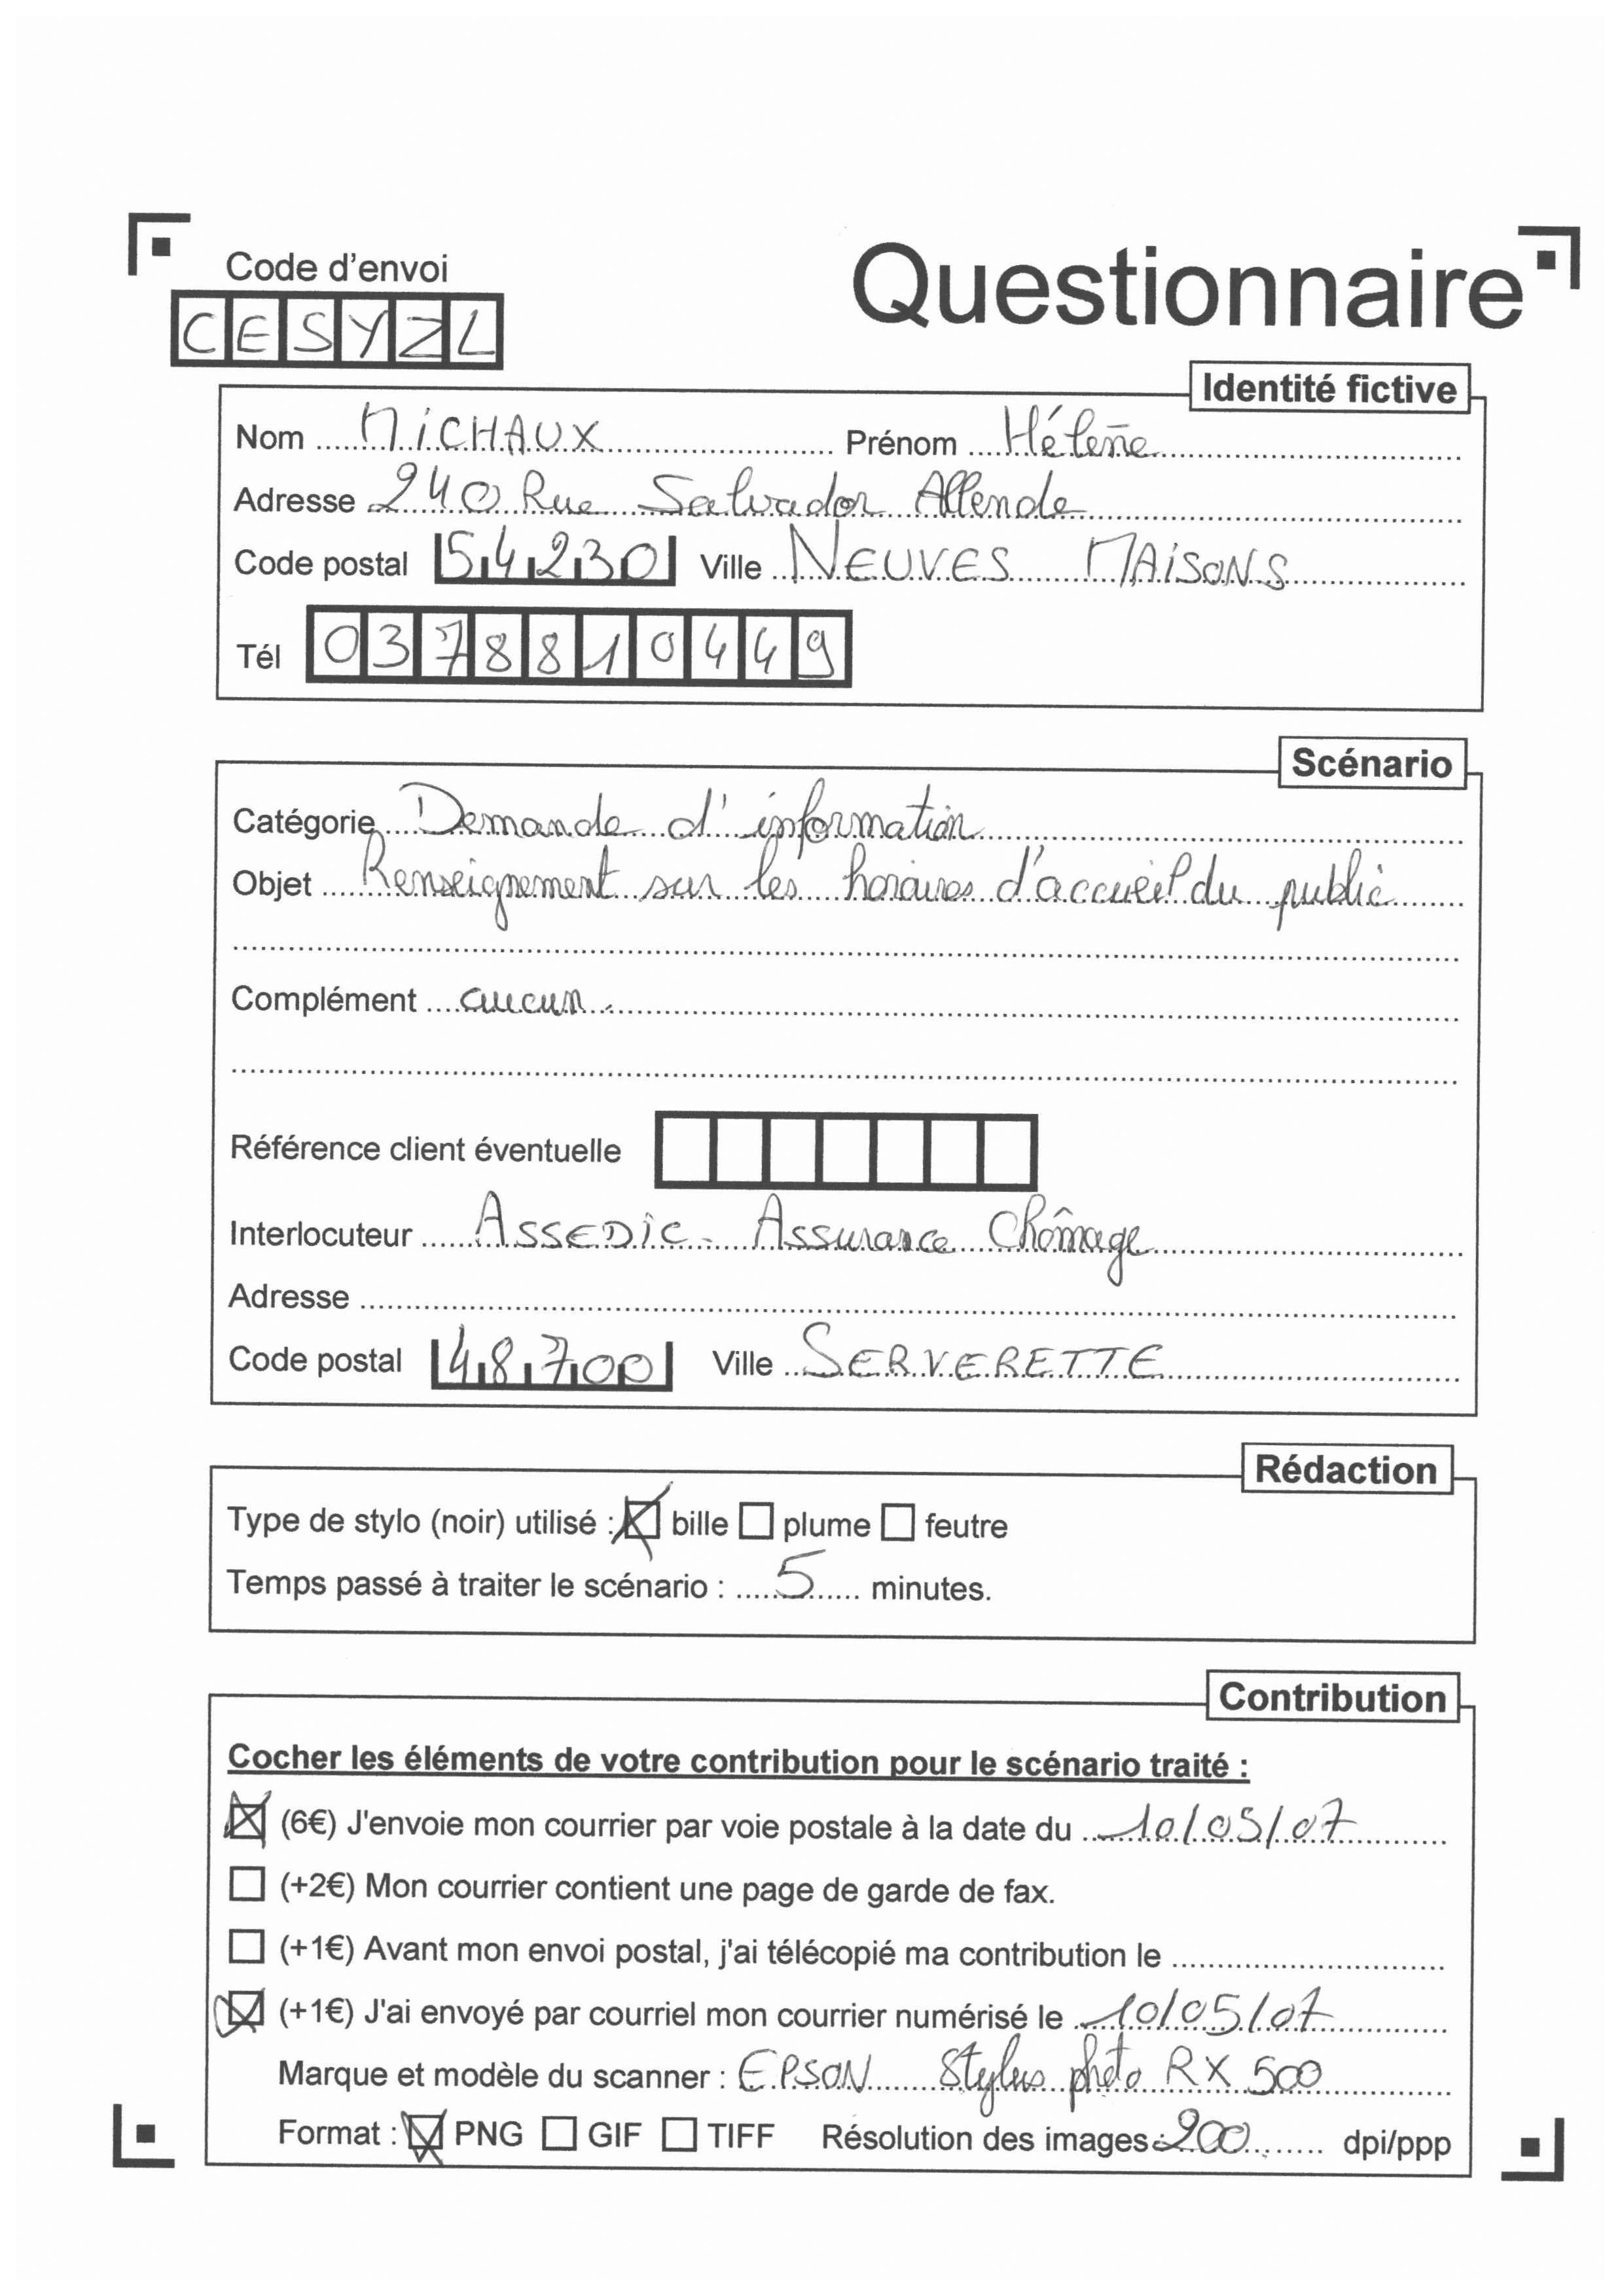 Code d'envoi
Questionnaire
CESYZL
Identité fictive
Nom MiCHAUX Prénom Hélène
Adresse 240 Rue Salvador Allende
Code postal 54230 Ville NEUVES MAiSONS
Tél 0378810449
Scénario
Catégorie Demande d'information
Objet Renseignement sur les horaires d'accueil du public
Complément aucun.
Référence client éventuelle
Interlocuteur ASSEDiC - Assurance Chômage
Adresse
Code postal 48700 Ville SERVERETTE
Rédaction
Type de stylo (noir) utilisé : bille plume feutre
Temps passé à traiter le scénario : 5 minutes.
Contribution
Cocher les éléments de votre contribution pour le scénario traité :
(6€) J'envoie mon courrier par voie postale à la date du 10/05/07
(+2€) Mon courrier contient une page de garde de fax.
(+1€) Avant mon envoi postal, j'ai télécopié ma contribution le
(+1€) J'ai envoyé par courriel mon courrier numérisé le 10/05/07
Marque et modèle du scanner : EPSON Stylus photo RX 500
Format : PNG GIF TIFF Résolution des images : 200 dpi/ppp